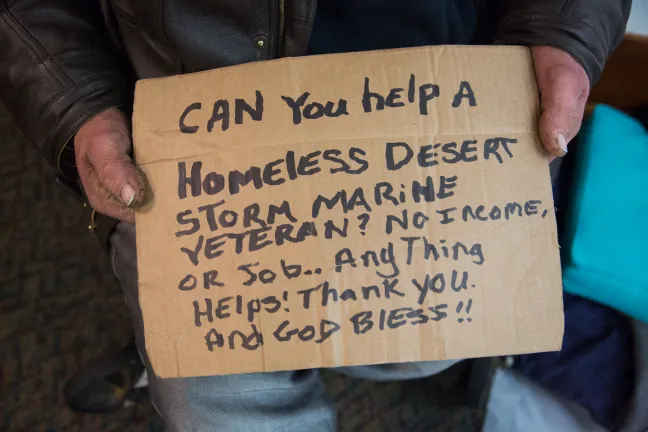 CAN You help A
HOMELESS DESERT
STORM MARiNE
VETERAN? No INCOME,
OR Job.. AnyThing
HELPS! Thank you.
And GOD BLESS!!